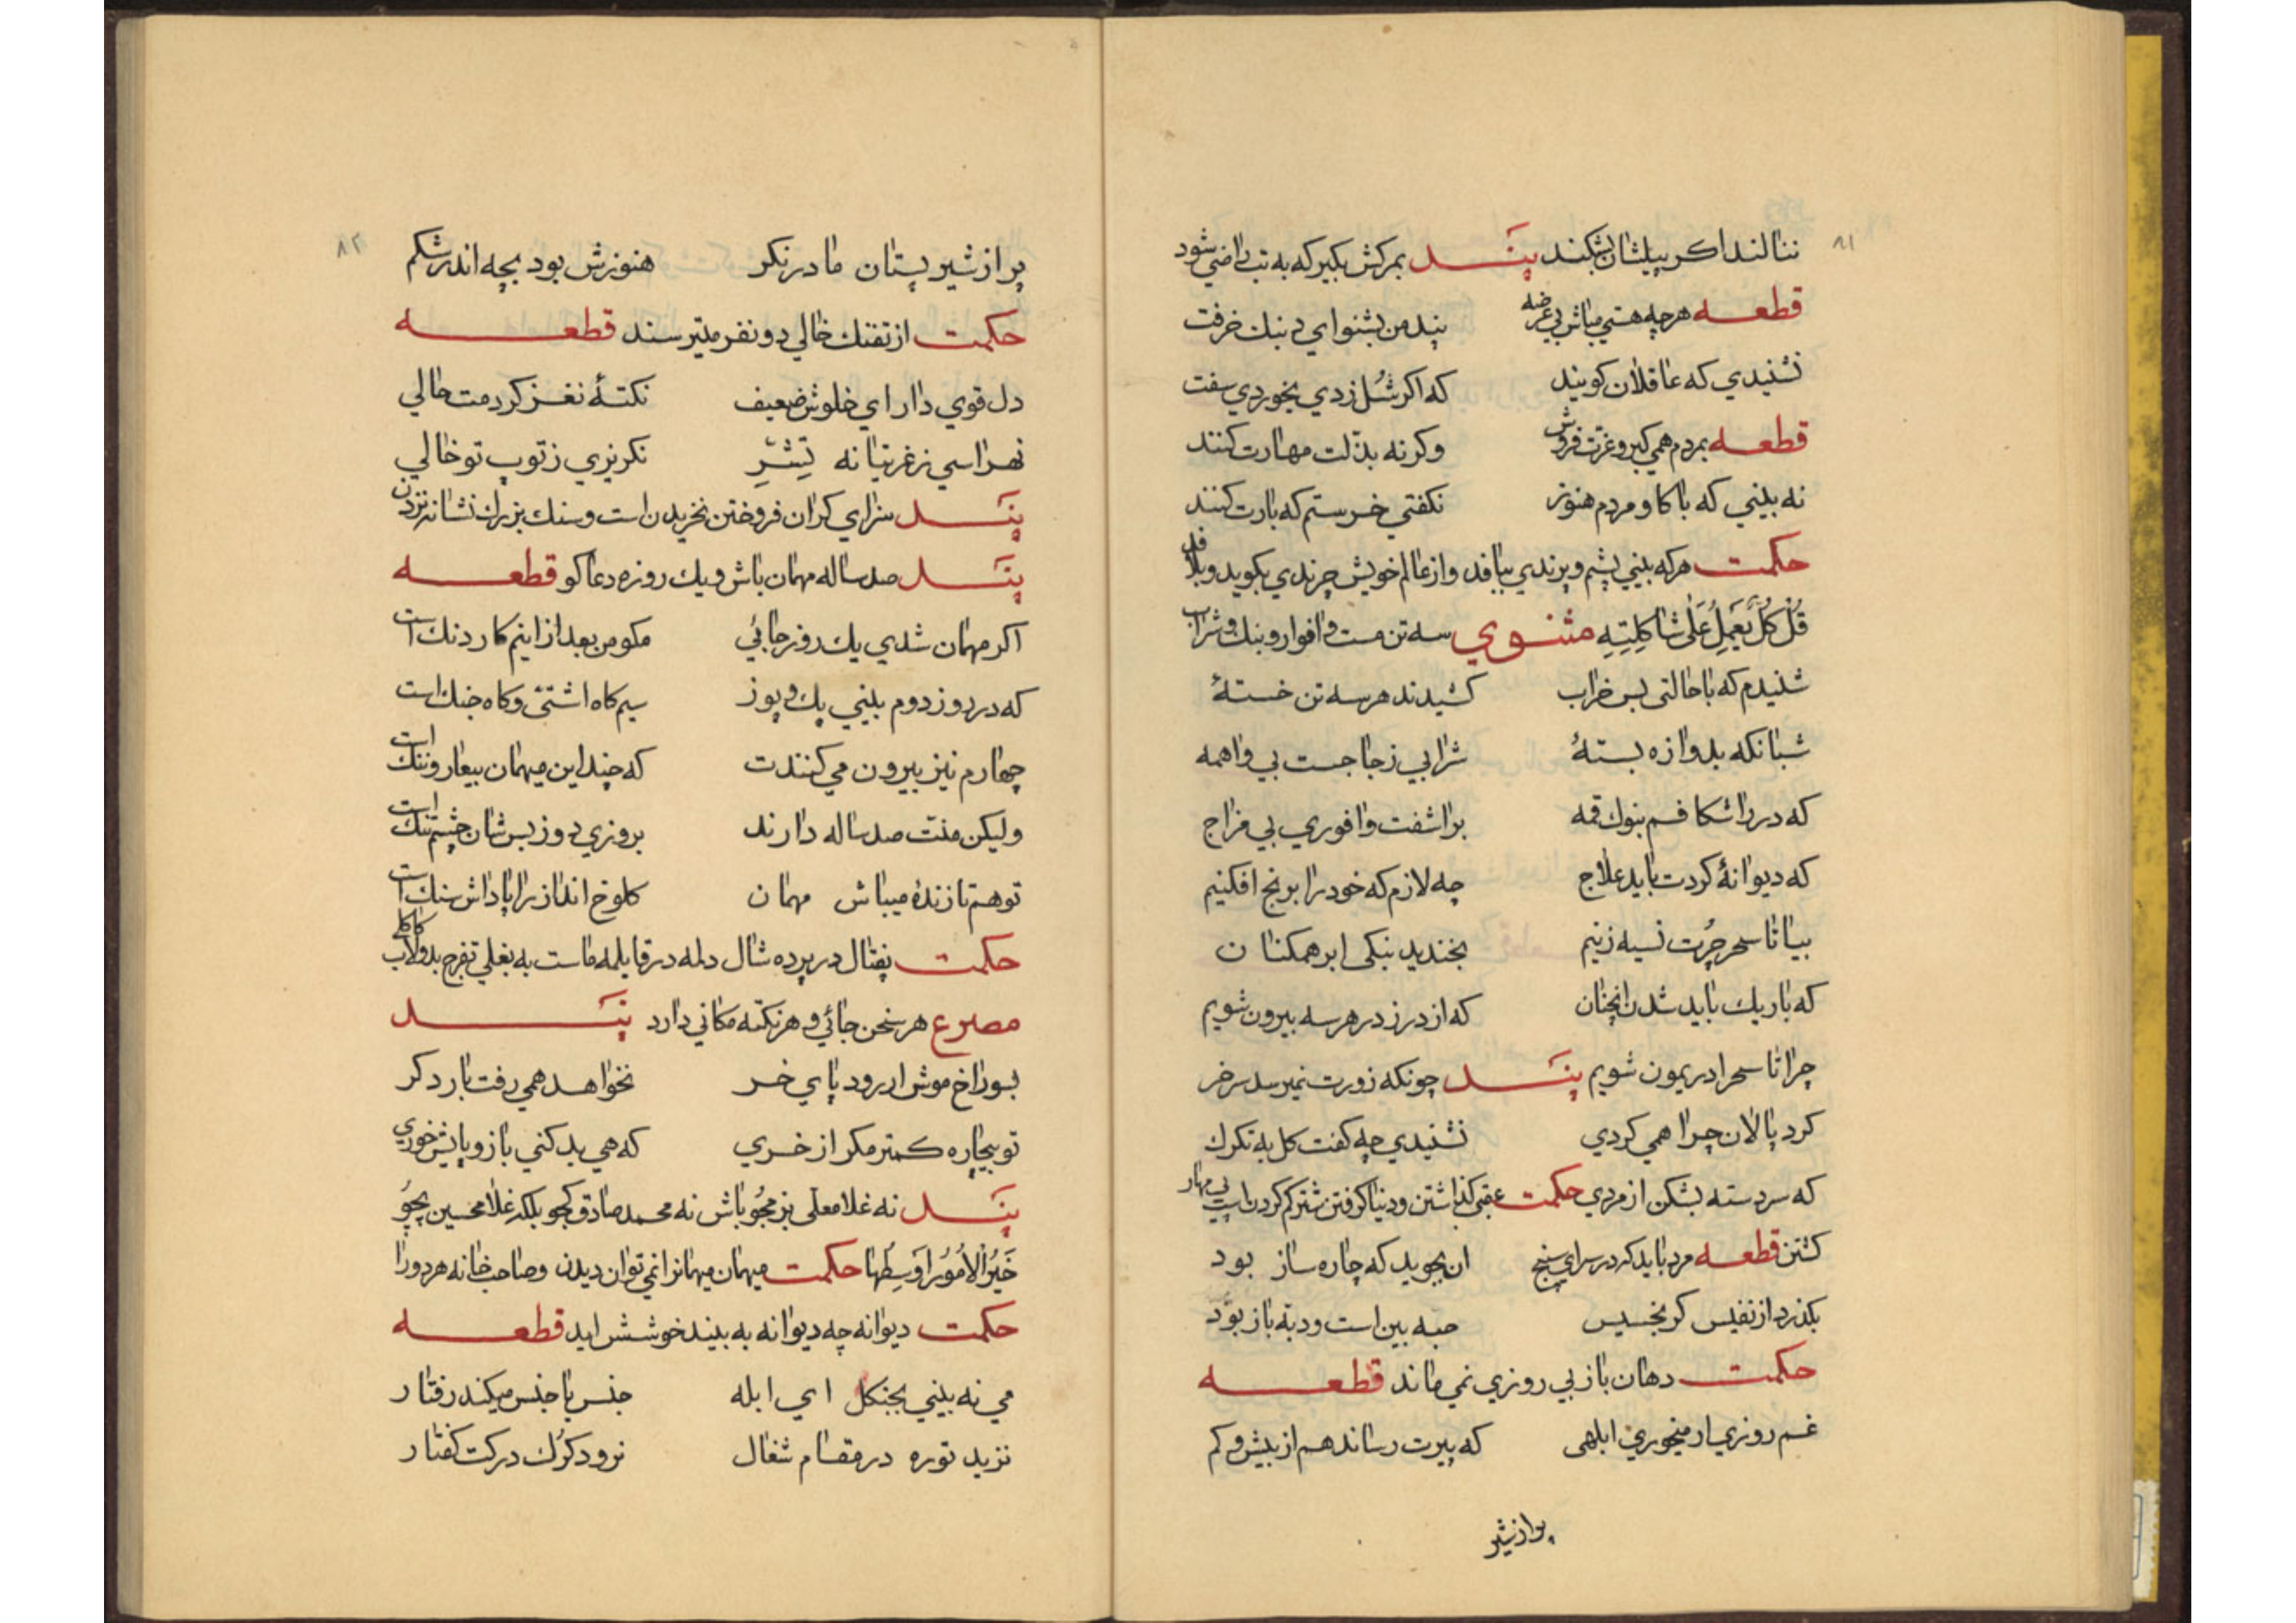 ۸۱
ننالند اکر بیلشان بشکنند پند بمرکش بکیر که به تب راضی شود
قطعه هرچه هستی مباش بی عرضه پند من بشنو ای دبنك خرفت
نشنیدي که عاقلان کویند که اکر شُل زدي بخوردي سفت
قطعه بمردم همی کبر و غرّت فروش وکرنه بذلت مهارت کنند
نه بینی که با کاو مردم هنوز نکفتی خرستم که بارت کنند
حکمت هرکه بینی پشم و پرندي ببافد و از عالم خویش چرندي بکوید و بلافد
قُل کُلٌّ یَعمَلُ عَلٰی شاکِلَتِهِ مثنوي سه تن مست وافور و بنك و شراب
شنیدم که با حالتی بس خراب کشیدند هر سه تن خستهٔ
شبانکه بدروازه بستهٔ شرابی ز جا جست بی واهمه
که در را شکافم بنوك قمه براشفت وافوري بی مزاج
که دیوانهٔ کردت باید علاج چه لازم که خود را برنج افکنیم
بیا تا سحر چُرت نسیه زنیم بخندید بنکی ابر همکنان
که باریك باید شدن انچنان که از درز در هر سه بیرون شویم
چرا تا سحر اندریمون شویم پند چونکه زورت نمیرسد سر خر
کرد پالان چرا همی کردي نشنیدي چه کفت کل به تکرك
که سر دسته بشکن از مردي حکمت عقبی کذاشتن و دنیا کرفتن شتر کم کردن است پی مهار
کشتن قطعه مرد باید که در سراي سپنج ان بجوید که چاره ساز بود
بکذرد از نفیس کر بخسیس حبه بین است و دبّه باز بود
حکمت دهان باز بی روزي نمی ماند قطعه
غم روزي ار میخوري ابلهی که پیرت رساند هم از بیش و کم
پر از شیر
۸۲
پر از شیر پستان مادر نکر هنوزش بود بچه اندر شکم
حکمت از تفنك خالی دو نفر میترسند قطعه
دل قوي دار اي خلوش ضعیف نکتهٔ نغز کردمت حالی
نهراسی ز غرتیانه تِشَّرِ نکریزي ز توپ تو خالی
پند سزاي کران فروختن نخریدن است و سنك بزرك نشانه نزدن
پند صد ساله مهمان باش و یك روزه دعاکو قطعه
اکر مهمان شدي یك روز جائی مکو من بعد از اینم کار دنك است
که در روز دوم بینی پك و پوز سیم کاه اشتی و کاه جنك است
چهارم نیز بیرون می کنندت که چند این میهمان بیعار و ننك است
ولیکن منت صد ساله دارند بروزي دوز بس شان چشم تنك است
تو هم تا زندهٔ میباش مهمان کلوخ انداز را پاداش سنك است
حکمت نقال در پرده شال دلمه در قابلمه ماست به بغلی تفرج بدولاب کاکا
مصرع هر سخن جائی و هر نکته مکانی دارد پند
بسوراخ موش ار رود پاي خر نخواهد همی رفت بار دکر
تو بیچاره کمتر مکر از خري که هی بد کنی باز و پایش خوري
پند نه غلامعلی بزمجُو باش نه محمد صادق کجو بلکه غلامحسین بچوُ
خَیرُ الاُمُورِ اَوسَطُها حکمت میهمان میهمانرا نمی توان دیدن و صاحب خانه هر دو را
حکمت دیوانه چه دیوانه به بیند خوشش اید قطعه
می نه بینی بجنکل اي ابله جنس با جنس میکند رفتار
نزید توره در مقام شغال نرود کرك در کت کفتار